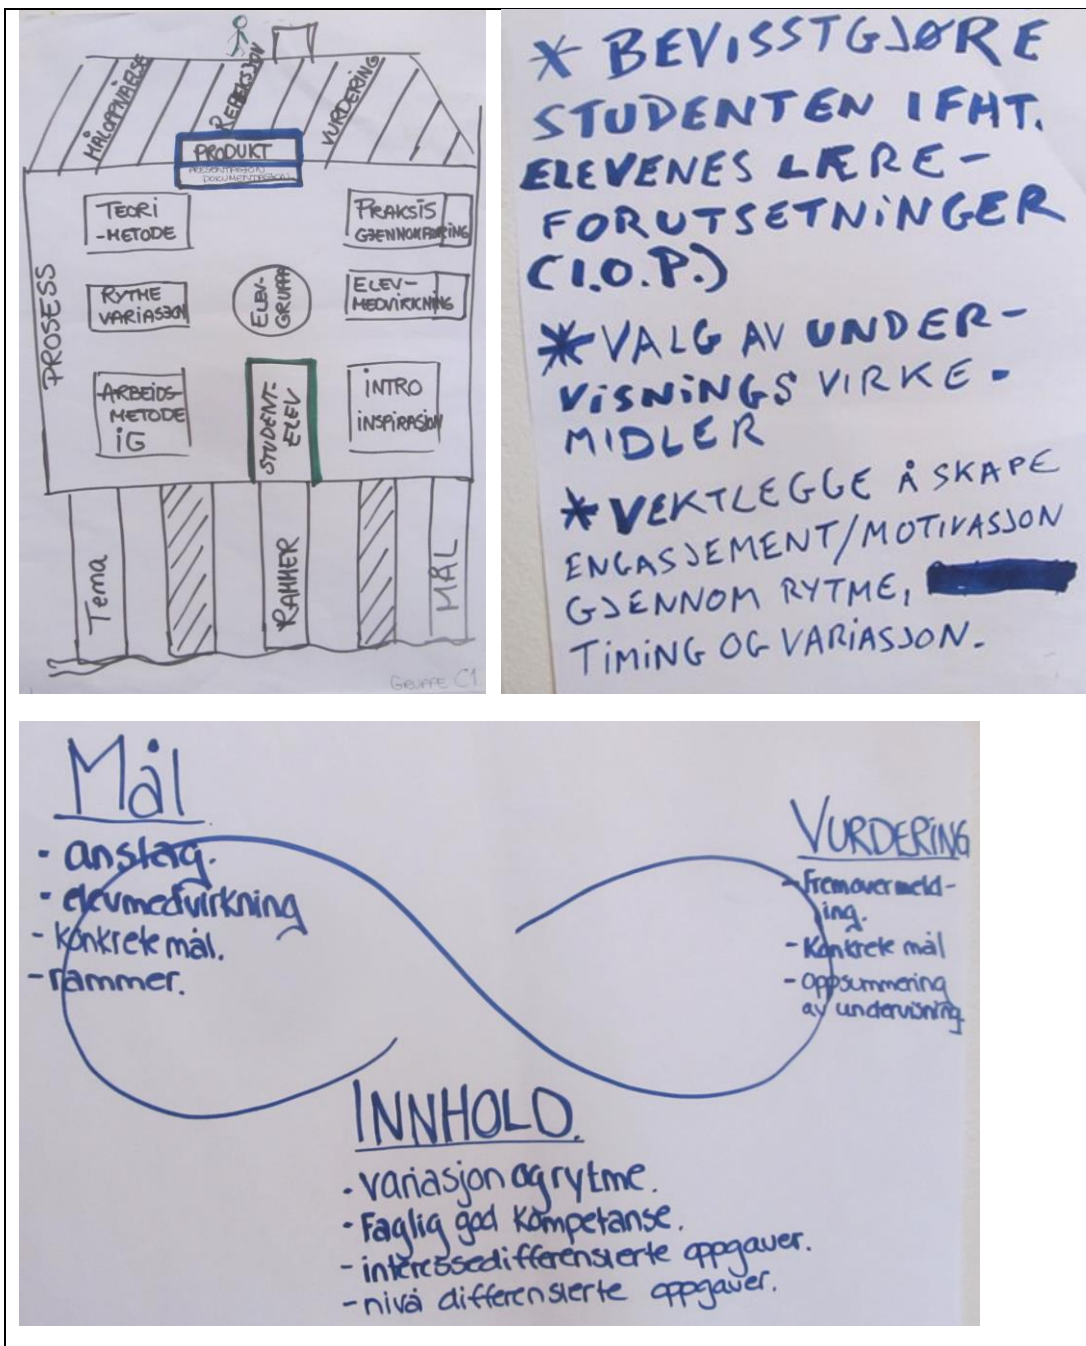 MÅLOPPNÅELSE
REFLEKSJON
VURDERING
PRODUKT
PRESENTASJON
DOKUMENTASJON
TEORI
-METODE
PRAKSIS
GJENNOMFØRING
PROSESS
RYTME
VARIASJON
ELEV-
GRUPPA
ELEV-
MEDVIRKNING
ARBEIDS-
METODE
iG
STUDENT-
ELEV
iNTRO
iNSPiRASJON
Tema
RAMMER
MÅL
GRUPPE C1
* BEVISSTGJØRE
STUDENTEN IFHT.
ELEVENES LÆRE-
FORUTSETNiNGER
(I.O.P.)
* VALG AV UNDER-
ViSNiNGS VIRKE-
MIDLER
* VEKTLEGGE Å SKAPE
ENGASJEMENT/MOTIVASJON
GJENNOM RYTME,
TiMiNG OG VARIASJON.
Mål
- anslag.
- elevmedvirkning
- konkrete mål.
- rammer.
VURDERING
- Fremovermeld-
ing.
- Konkrete mål
- oppsummering
av undervisning
INNHOLD.
- variasjon og rytme.
- Faglig god kompetanse.
- interessedifferensierte oppgaver.
- nivå differensierte oppgaver.